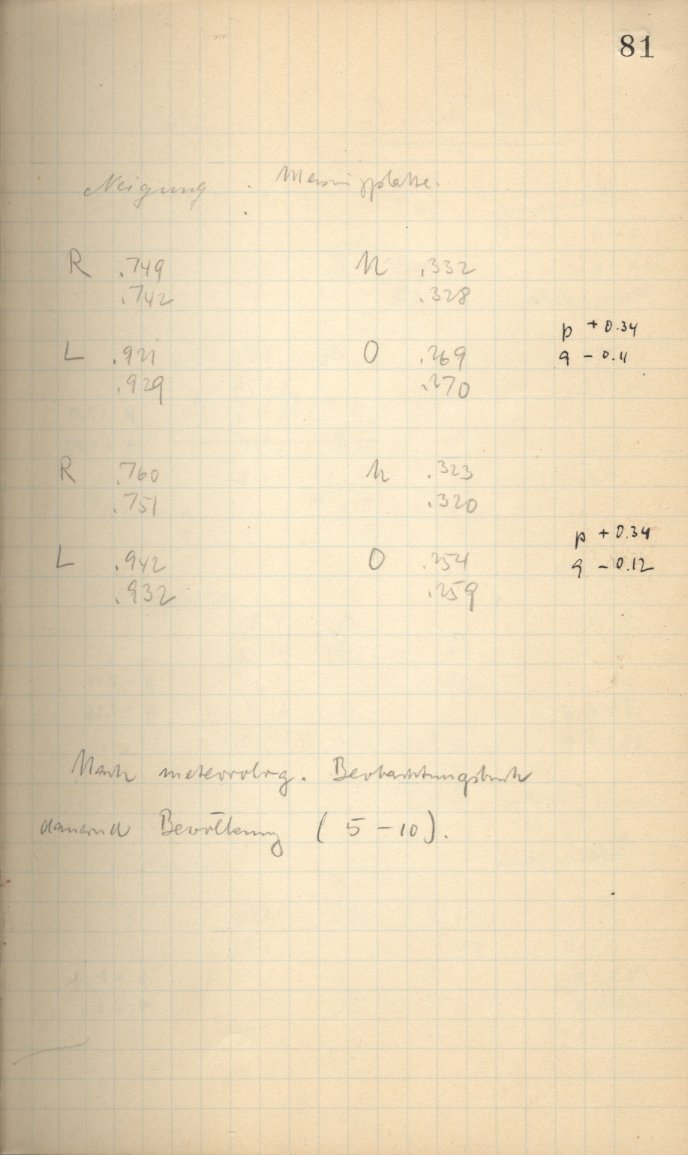 81
Neigung . Messingplatte.
R .749 N .332
.742 .328
p + 0.34
L .921 O .269 q - 0.11
.929 .270
R .760 N .323
.751 .320
p + 0.34
L .942 O .254 q - 0.12
.932 .259
Nach meteorolog. Beobachtungsbuch
dauernd Bewölkung (5-10).